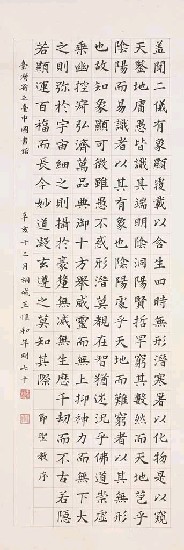 蓋聞二儀有象顯覆載以含生四時無形潛寒暑以化物是以窺
天鑒地庸愚皆識其端明陰洞陽賢哲罕窮其數然而天地苞乎
陰陽而易識者以其有象也陰陽處乎天地而難窮者以其無形
也故知象顯可徵雖愚不惑形潛莫覩在智猶迷況乎佛道崇虛
乘幽控寂弘濟萬品典御十方舉威靈而無上抑神力而無下大
之則彌於宇宙細之則攝於毫釐無滅無生歷千劫而不古若隱
若顯運百福而長今妙道凝玄遵之莫知其際 節聖教序
臺灣省立臺中圖書館 辛亥十二月桐城王愷和年剛七十